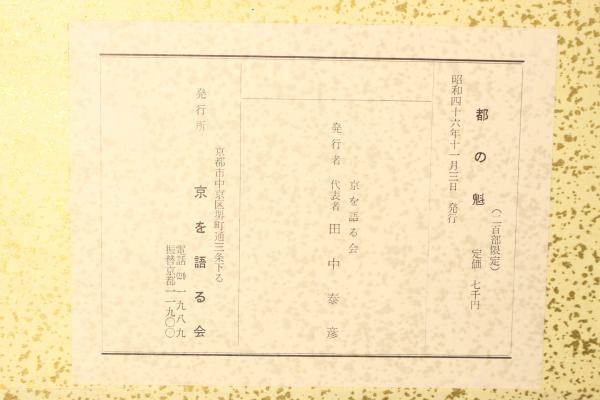 都の魁
（二百部限定）
定価 七千円
昭和四十六年十一月三日 発行
京を語る会
発行者 代表者 田中泰彦
京都市中京区堺町通三条下る
発行所 京を語る会
電話 一九八九
振替京都一一九〇〇